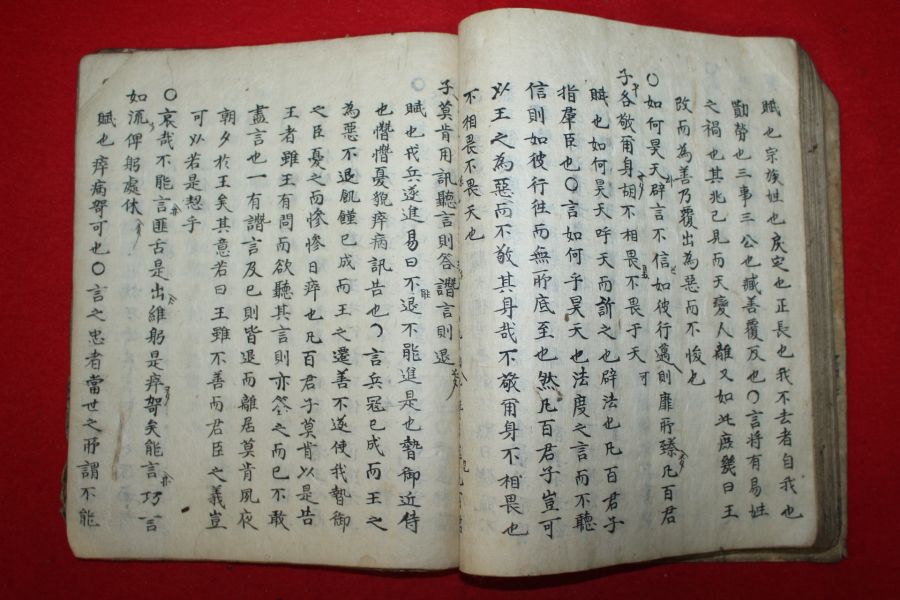 賦也宗族姓也戾定也正長也我不去者自我也
勩勞也三事三公也臧善覆反也〇言將有易姓
之禍也其兆已見而天變人離又如此庶幾曰王
改而為善乃覆出為惡而不悛也
〇如何昊天辟言不信如彼行邁則靡所臻凡百君
子各敬爾身胡不相畏不畏于天
賦也如何昊天呼天而訴之也辟法也凡百君子
指羣臣也〇言如何乎昊天也法度之言而不聽
信則如彼行往而無所底至也然凡百君子豈可
以王之為惡而不敬其身哉不敬爾身不相畏也
不相畏不畏天也
子莫肯用訊聽言則答譖言則退
〇賦也戎兵遂進易曰不退不能進是也暬御近侍
也憯憯憂貌瘁病訊告也〇言兵寇已成而王之
為惡不退飢饉已成而王之遷善不遂使我暬御
之臣憂之而慘慘日瘁也凡百君子莫肯以是告
王者雖王有問而欲聽其言則亦答之而已不敢
盡言也一有譖言及已則皆退而離居莫肯夙夜
朝夕於王矣其意若曰王雖不善而君臣之義豈
可以若是恝乎
〇哀哉不能言匪舌是出維躬是瘁哿矣能言巧言
如流俾躬處休
賦也瘁病哿可也〇言之忠者當世之所謂不能